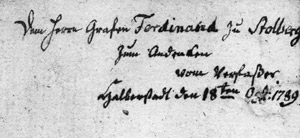 Dem Herrn Grafen Ferdinand zu Stolberg
zum Andenken
vom Verfaßer
Halberstadt den 18ten Oct. 1789